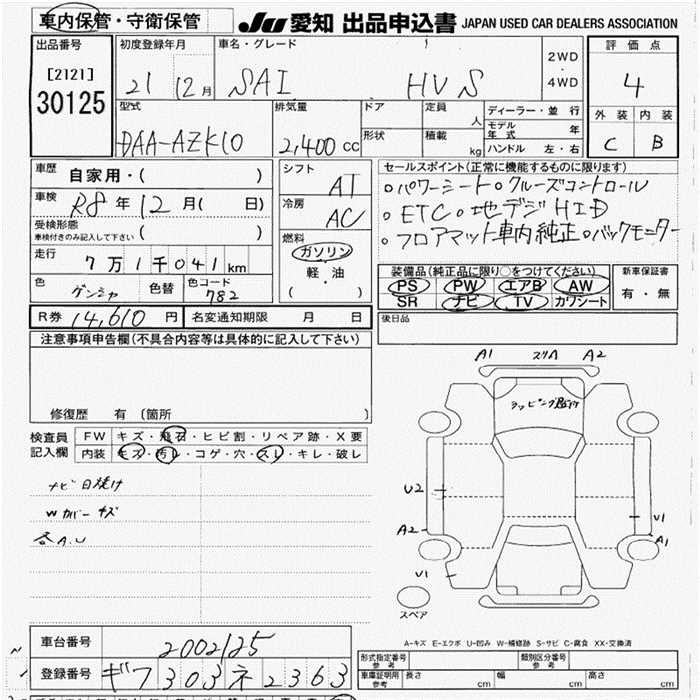 車内保管・守衛保管
JU 愛知 出品申込書 JAPAN USED CAR DEALERS ASSOCIATION
出品番号 初度登録年月 車名・グレード 評価点
[2121] 2WD
30125 21 12月 SAI HV S 4WD 4
型式 排気量 ドア 定員 ディーラー・並行 外装 内装
人 モデル年式 年
DAA-AZK10 2,400cc 形状 積載 kg ハンドル 左・右 C B
車歴 自家用・( ) シフト AT セールスポイント(正常に機能するものに限ります)
車検 R8年12月( 日) 冷房 AC ○パワーシート○クルーズコントロール
受検形態 ○ETC○地デジHID
車検付きのみ記入して下さい ( ) 燃料 ○フロアマット車内純正○バックモニター
走行 7万1千041km ガソリン
軽・油 装備品(純正品に限り○をつけてください) 新車保証書
色 ゲンシャ 色替 色コード 782 ( ) PS PW エアB AW 有・無
SR ナビ TV カワシート
R券 14,610円 名変通知期限 月 日 後日品
注意事項申告欄(不具合内容等は具体的に記入して下さい)
A1 スリA A2
ラッピング
修復歴 有(箇所 )
検査員 FW キズ・飛石・ヒビ割・リペア跡・X要
記入欄 内装 キズ・汚レ・コゲ・穴・スレ・キレ・破レ
ナビ日焼け
Wカバーキズ
各A.U
U2
V1
A2
A1
V1
スペア
A-キズ E-エクボ U-凹み W-補修跡 S-サビ C-腐食 XX-交換済
車台番号 2002125 形式指定番号 参考 類別区分番号 参考
登録番号 ギフ303ネ2363 車庫証明用 参考 長さ cm 幅 cm 高さ cm